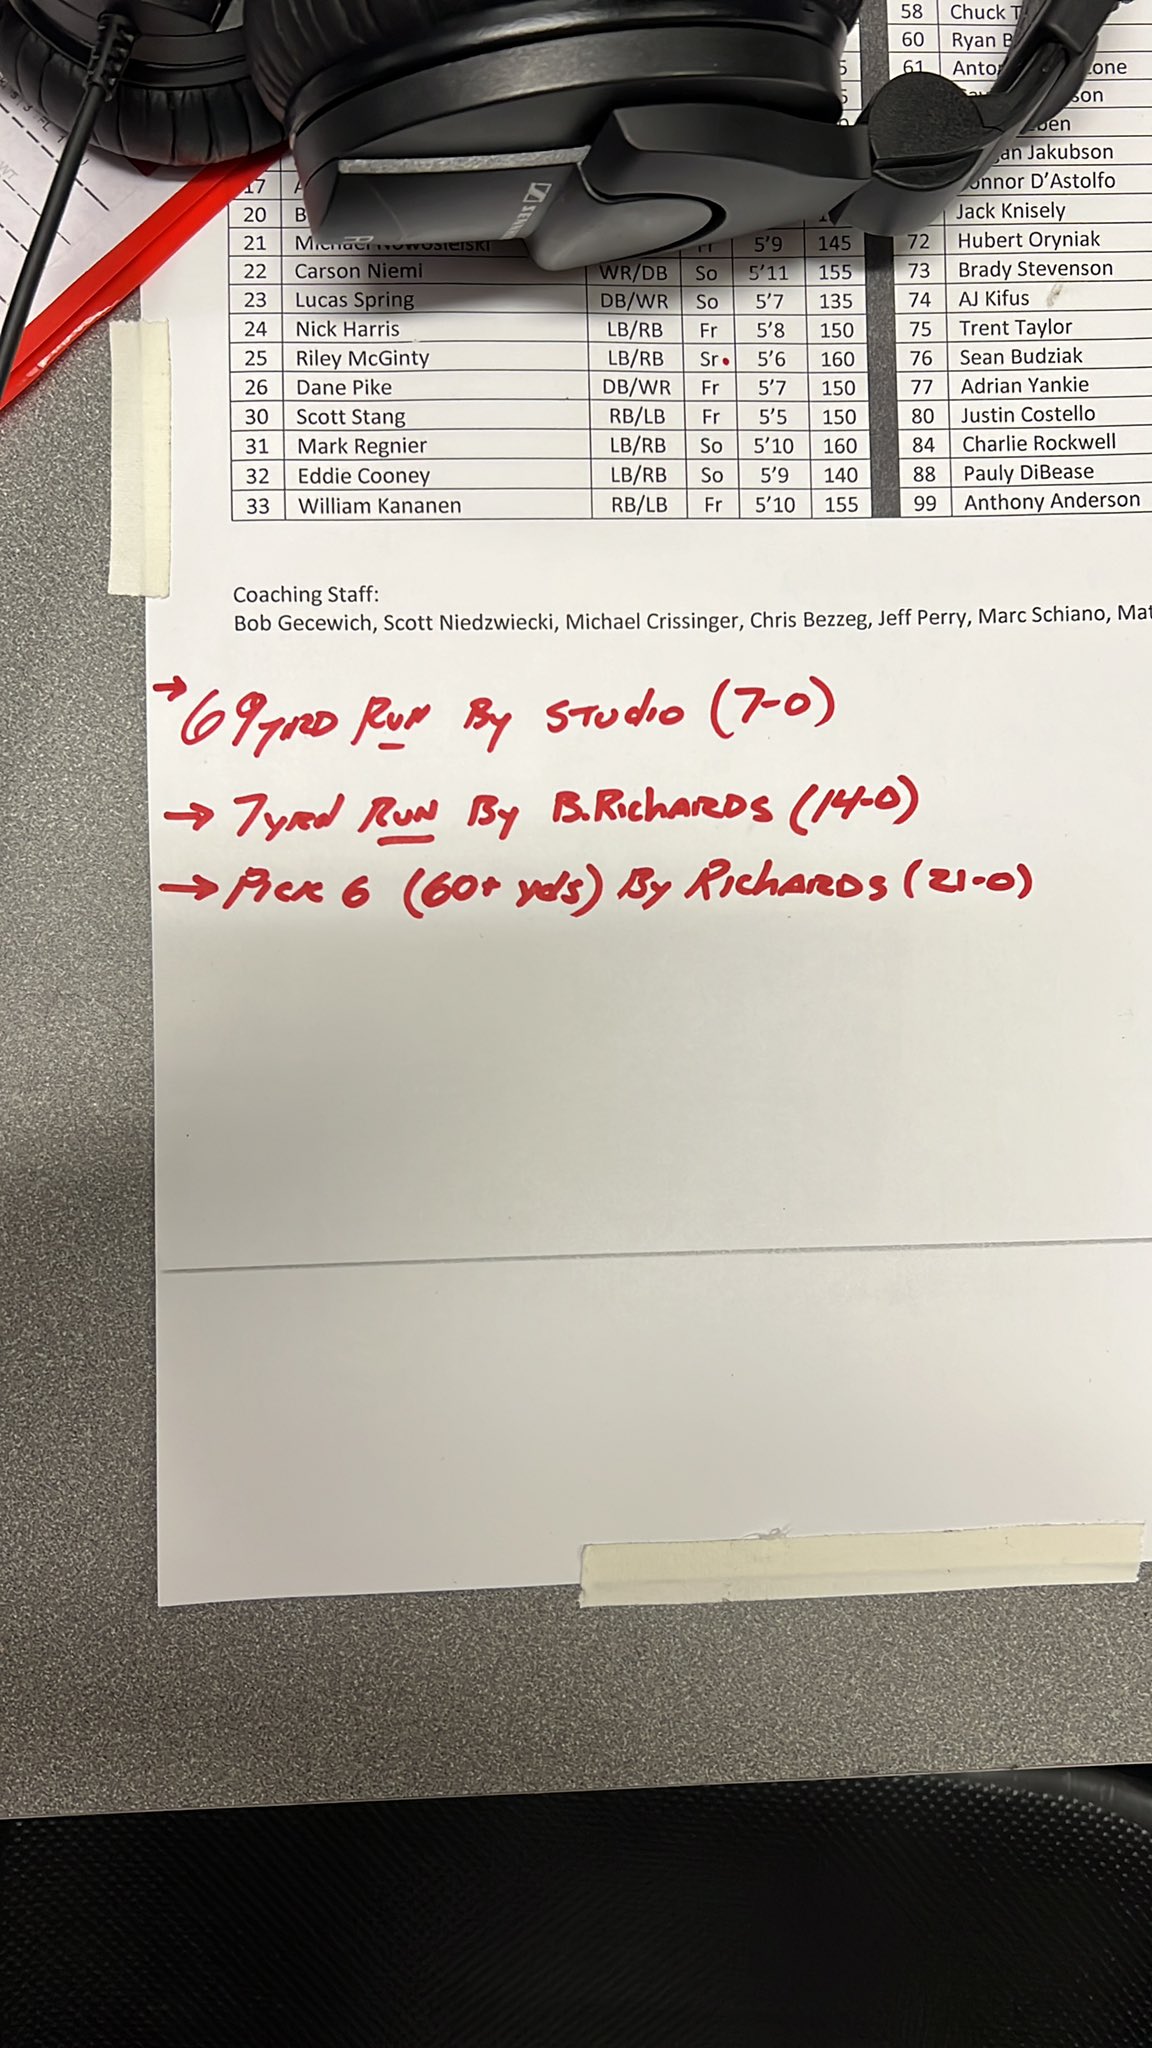 58 Chuck
60 Ryan
61
Jakubson
17
Connor D'Astolfo
20 B
Jack Knisely
21 Michael Nowosielski Fr 5'9 145 72 Hubert Oryniak
22 Carson Niemi WR/DB So 5'11 155 73 Brady Stevenson
23 Lucas Spring DB/WR So 5'7 135 74 AJ Kifus
24 Nick Harris LB/RB Fr 5'8 150 75 Trent Taylor
25 Riley McGinty LB/RB Sr 5'6 160 76 Sean Budziak
26 Dane Pike DB/WR Fr 5'7 150 77 Adrian Yankie
30 Scott Stang RB/LB Fr 5'5 150 80 Justin Costello
31 Mark Regnier LB/RB So 5'10 160 84 Charlie Rockwell
32 Eddie Cooney LB/RB So 5'9 140 88 Pauly DiBease
33 William Kananen RB/LB Fr 5'10 155 99 Anthony Anderson
Coaching Staff:
Bob Gecewich, Scott Niedzwiecki, Michael Crissinger, Chris Bezzeg, Jeff Perry, Marc Schiano, Mat
→ 69 YRD RUN By STUDIO (7-0)
→ 7 YRD RUN By B.RICHARDS (14-0)
→ PICK 6 (60+ yds) By RICHARDS (21-0)